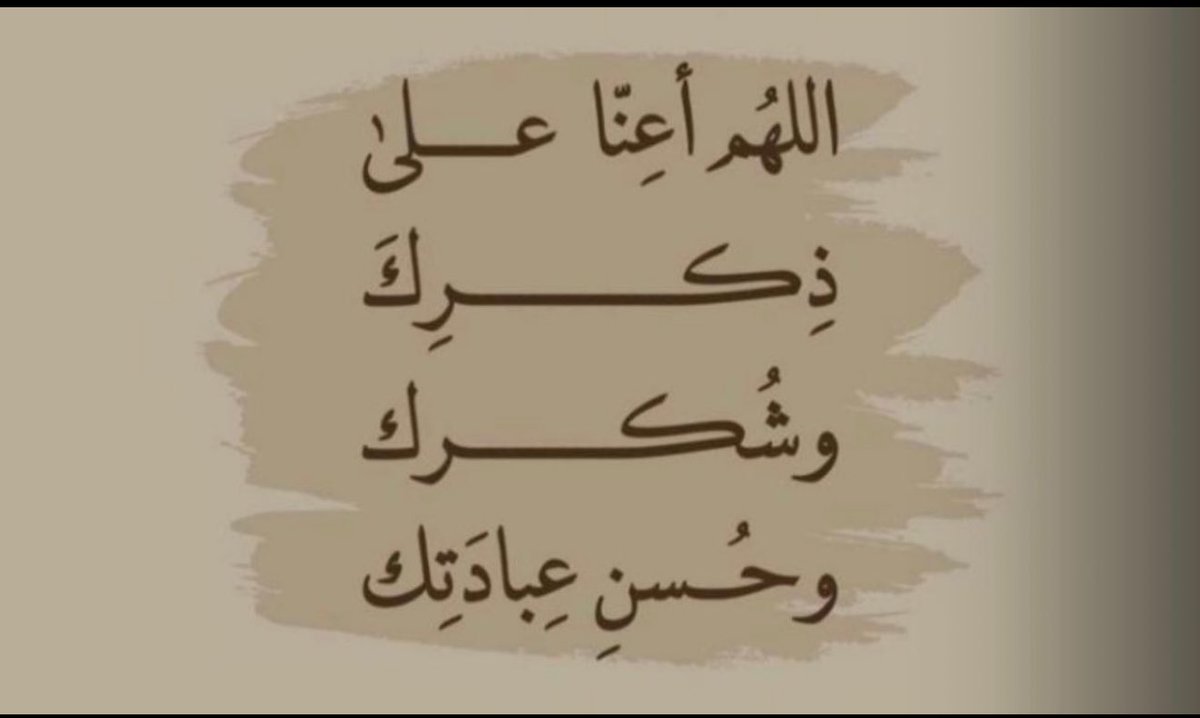 اللهُم أَعِنّا علىٰ
ذِكرِكَ
وشُكرك
وحُسنِ عِبادَتِك